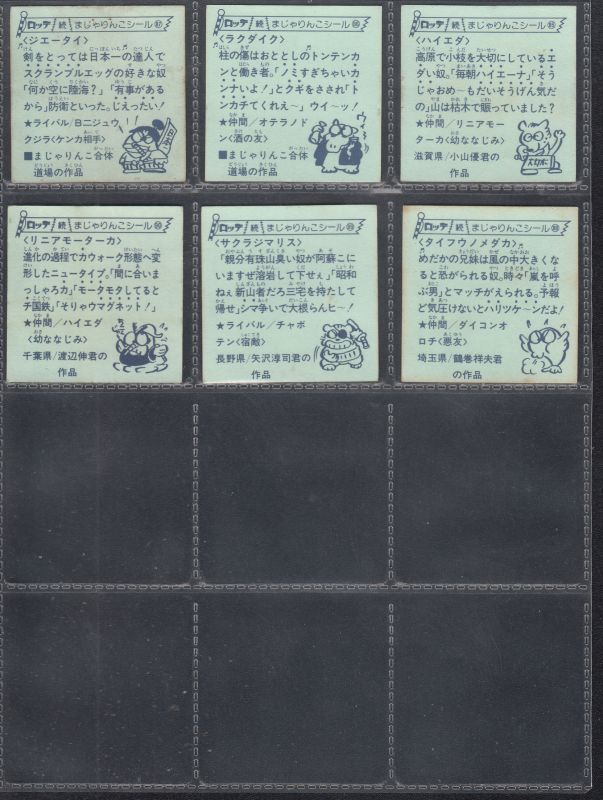 ロッテ 続 まじゃりんこシール 87
<ジエータイ>
剣をとっては日本一の達人で
スクランブルエッグの好きな奴
「何か空に陸海?」「有事がある
から」防衛といった。じえったい!
★ライバル/Bニジュウ
クジラ<ケンカ相手>
■まじゃりんこ合体
道場の作品
ロッテ 続 まじゃりんこシール
<ラクダイク>
柱の傷はおととしのトンテンカ
ンと働き者。「ノミすぎちゃいカ
ンナいよ!」とクギをさされ「ト
ンカチてくれえ~」ウイーッ!
★仲間/オテラノド
ン<酒の友>
■まじゃりんこ合体
道場の作品
ロッテ 続 まじゃりんこシール
<ハイエダ>
高原で小枝を大切にしているエ
ダい奴。「毎朝ハイエーナ」「そう
じゃおめ~もだいそうげん気だ
の」山は枯木で賑っていました?
★仲間/リニアモー
ターカ<幼ななじみ>
滋賀県/小山優君の
作品
ロッテ 続 まじゃりんこシール
<リニアモーターカ>
進化の過程でカウォーク形態へ変
形したニュータイプ。「間に合いま
っしゃろ力」「モータモタしてると
チ国鉄」「そりゃウマグネット!」
★仲間/ハイエダ
<幼ななじみ>
千葉県/渡辺伸君の
作品
ロッテ 続 まじゃりんこシール
<サクラジマリス>
「親分有珠山臭い奴が阿蘇こに
いますぜ溶岩して下せぇ」「昭和
ねぇ新山者だろ三宅を持たして
帰せ」シマ争いで大根らんヒ~!
★ライバル/チャボ
テン<宿敵>
長野県/矢沢淳司君の
作品
ロッテ 続 まじゃりんこシール
<タイフウノメダカ>
めだかの兄妹は風の中大きくな
ると恐がられる奴。時々「嵐を呼
ぶ男」とマッチがえられる。予報
ど気圧けないとハリツケ~ンだよ!
★仲間/ダイコンオ
ロチ<悪友>
埼玉県/鶴巻祥夫君
の作品